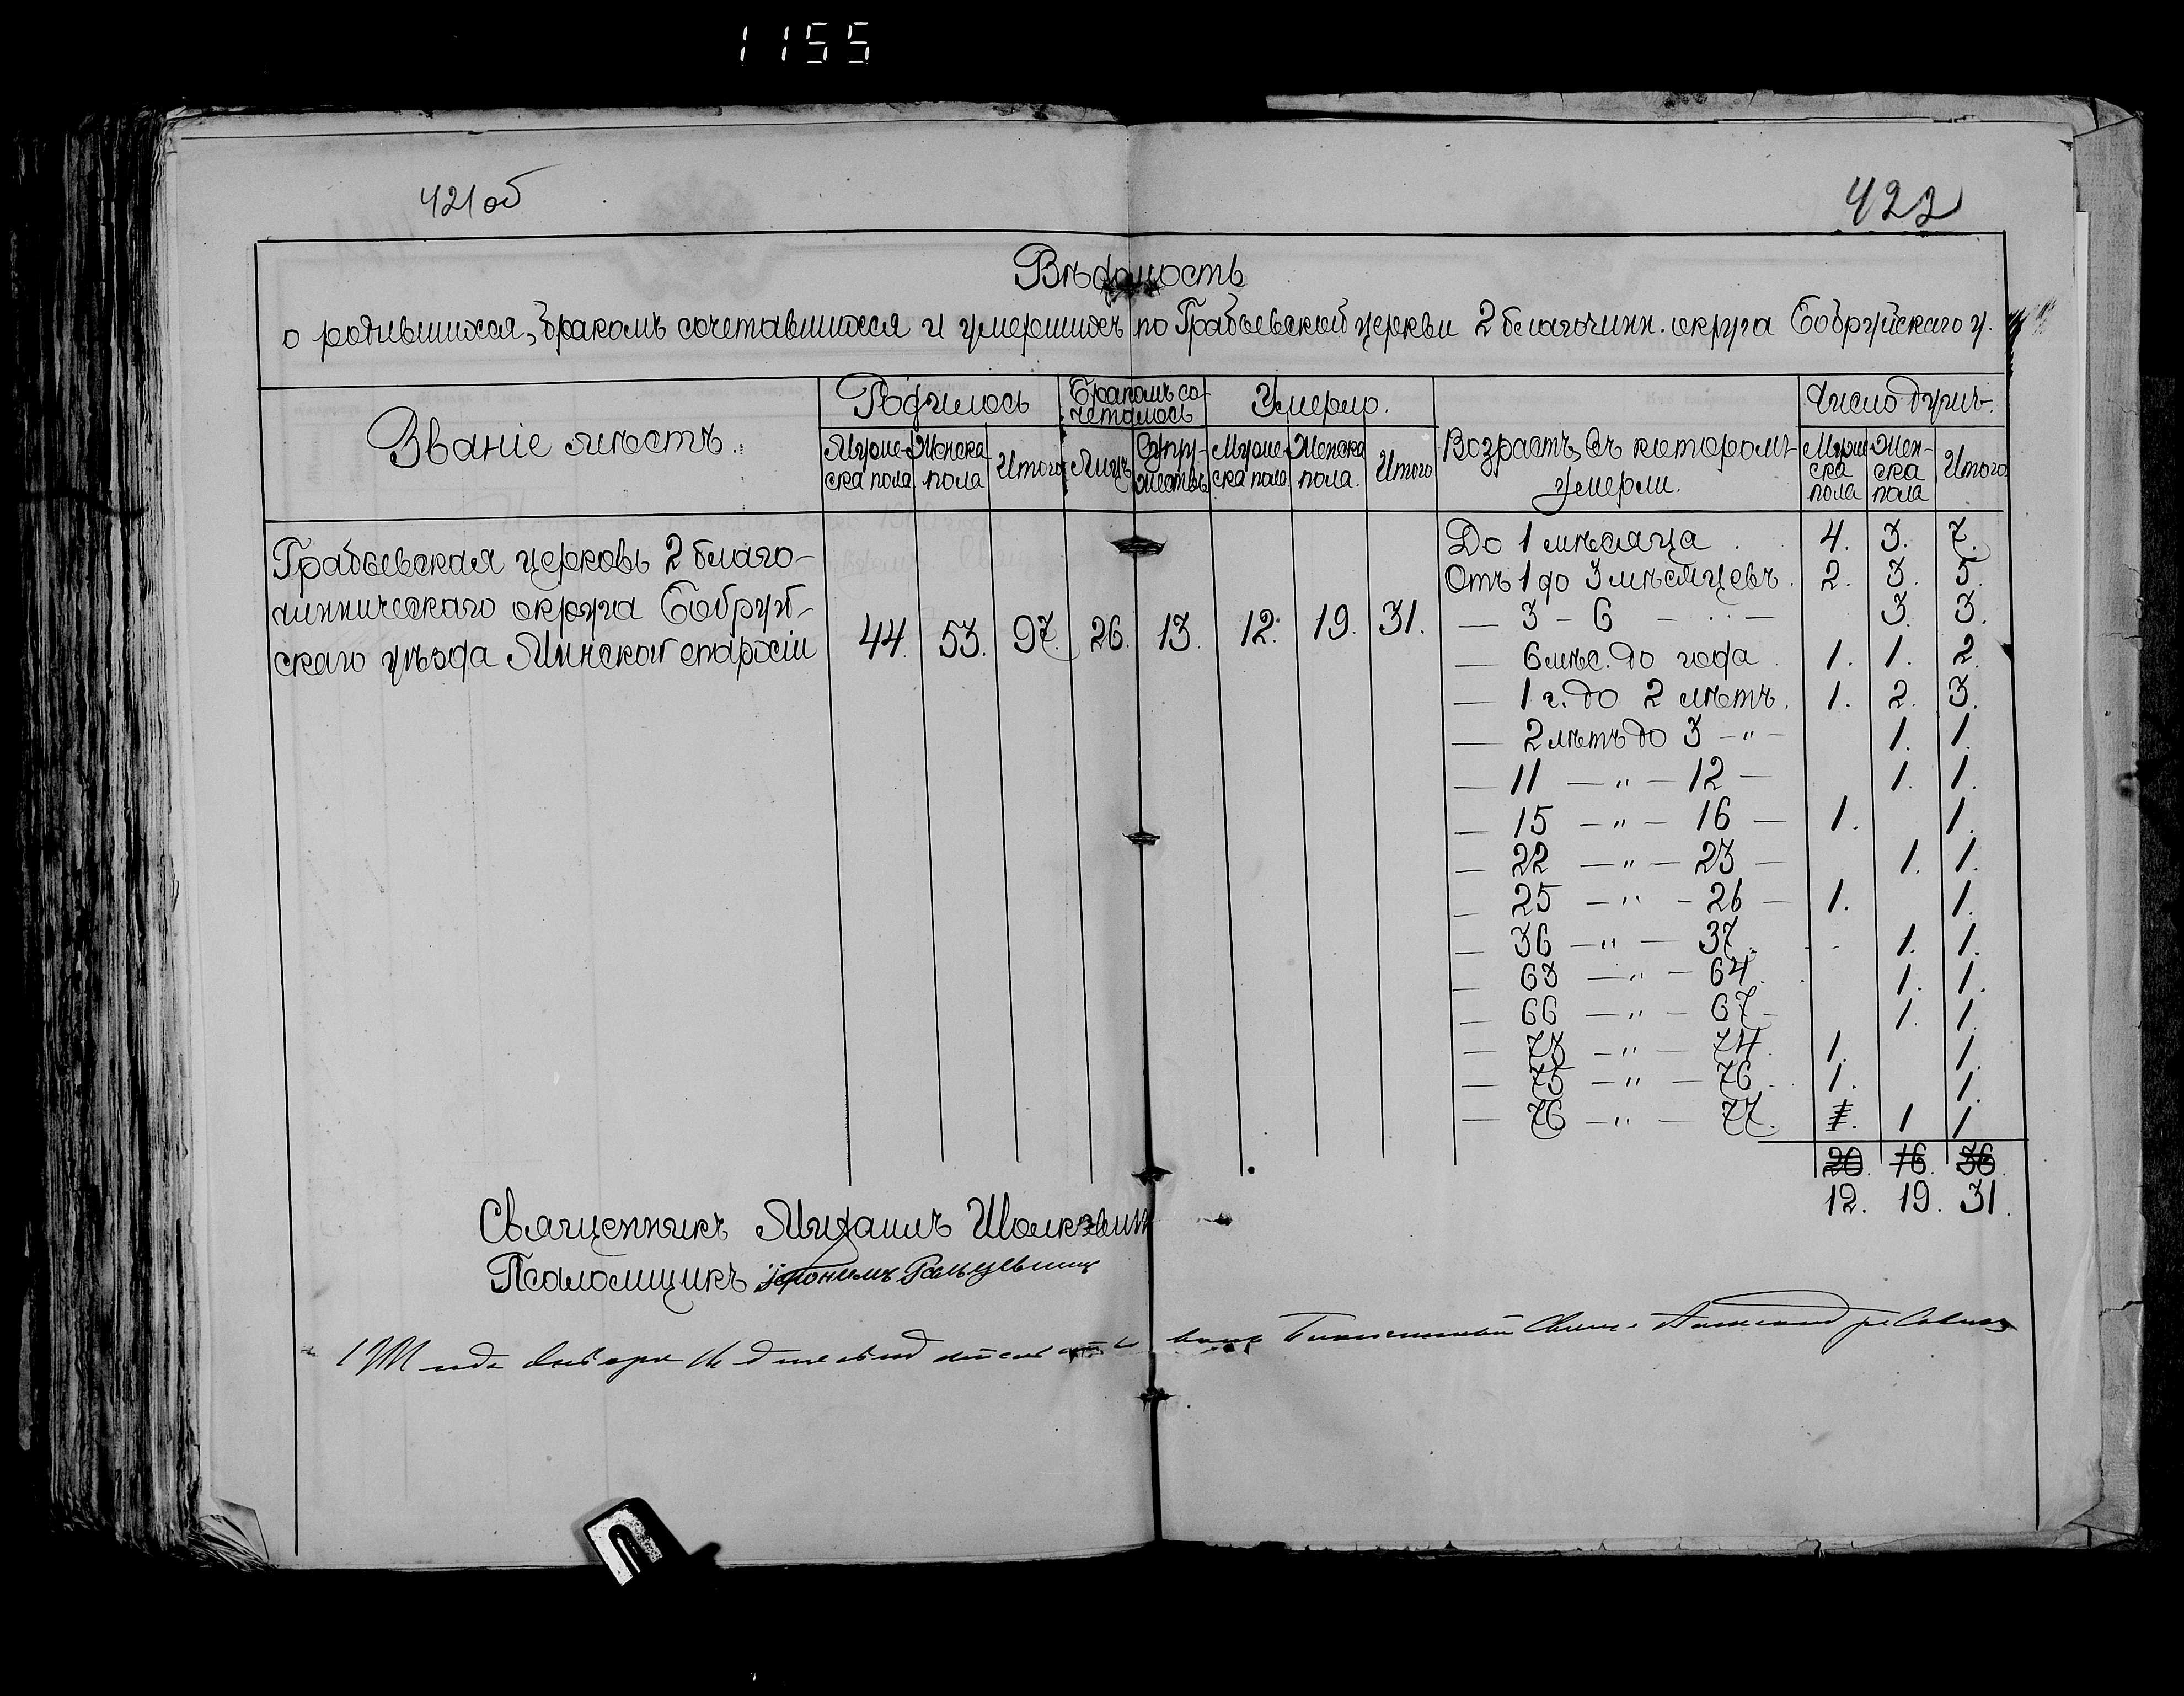 1155
421об
422
Вѣдомость
о родившихся, бракомъ сочетавшихся и умершихъ по Грабьевской церкви 2 благочинн. округа Бобруйскаго у.
Званіе мѣстъ.
Родилось
Бракомъ со-
четалось
Умерло.
Возрастъ, въ которомъ
умерли.
Число душъ.
Мужe-
ска пола
Женска
пола
Итого
Лицъ
Супру-
жествъ
Муже-
ска пола
Женска
пола.
Итого
Муже
ска
пола
Жен-
ска
пола
Итого
Грабьевская церковь 2 благо-
чинническаго округа Бобруй-
скаго уѣзда Минской епархіи
44. 53. 97. 26. 13. 12. 19. 31.
До 1 мѣсяца 4. 3. 7.
Отъ 1 до 3 мѣсяцевъ. 2. 3. 5.
— 3 – 6 — 3. 3.
— 6 мѣс. до года 1. 1. 2.
— 1 г. до 2 лѣтъ. 1. 2. 3.
— 2 лѣтъ до 3 – " – 1. 1.
— 11 — " — 12 — 1. 1.
— 15 — " — 16 — 1. 1.
— 22 — " — 23 — 1. 1.
— 25 — " — 26 — 1. 1.
— 36 — " — 37. 1. 1.
— 63 — " — 64. 1. 1.
— 66 — " — 67 – 1. 1.
— 73 — " — 74. 1. 1.
— 75 — " — 76. 1. 1.
— 76 — " — 77. 1. 1 1
20. 16. 36.
12. 19. 31.
Священникъ Михаилъ
Псаломщикъ